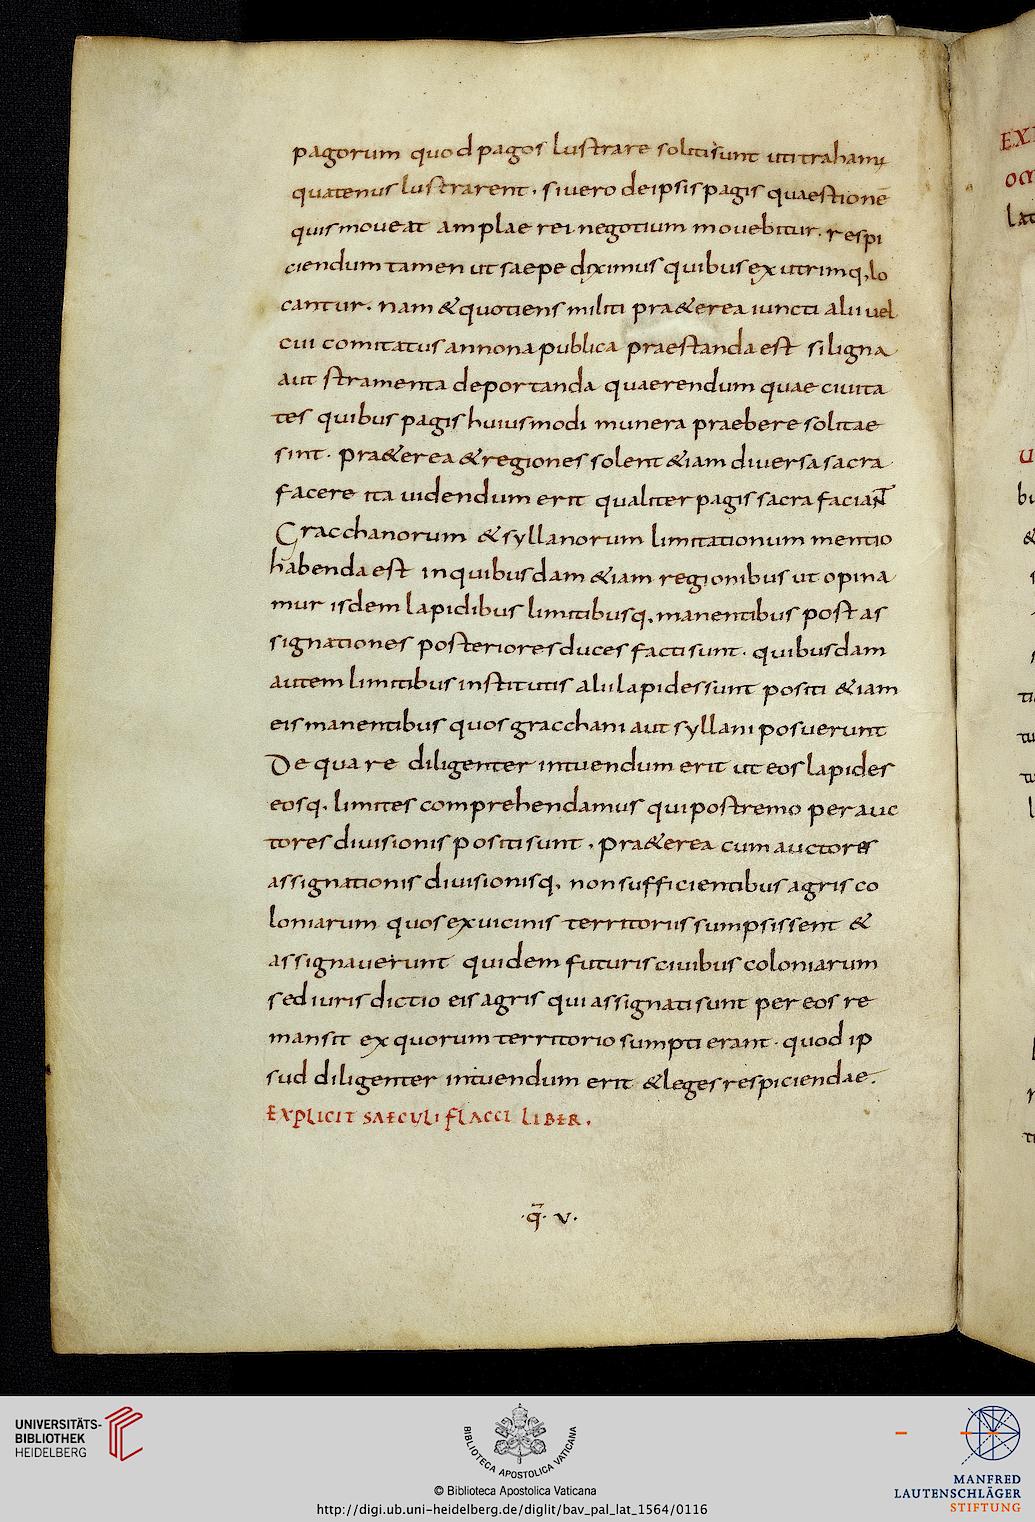 pagorum quod pagos lustrare soliti sunt uti trahamꝰ
quatenus lustrarent. si uero de ipsis pagis quaestionē
quis moueat amplae rei negotium mouebitur. respi
ciendum tamen ut saepe diximus quibus ex utrimq; lo
cantur. nam & quotiens militi pra&erea iuncti alii uel
cui comitatus annona publica praestanda est si ligna
aut stramenta deportanda quaerendum quae ciuita
tes quibus pagis huiusmodi munera praebere solitae
sint. pra&erea & regiones solent &iam diuersa sacra
facere ita uidendum erit qualiter pagis sacra faciant
Gracchanorum & syllanorum limitationum mentio
habenda est in quibusdam &iam regionibus ut opina
mur isdem lapidibus limitibusq; manentibus post as
signationes posteriores duces facti sunt. quibusdam
autem limitibus institutis alii lapides sunt positi &iam
eis manentibus quos gracchani aut syllani posuerunt
De qua re diligenter intuendum erit ut eos lapides
eosq; limites comprehendamus qui postremo per auc
tores diuisionis positi sunt. pra&erea cum auctores
assignationis diuisionisq; non sufficientibus agris co
loniarum quos ex uicinis territoriis sumpsissent &
assignauerunt quidem futuris ciuibus coloniarum
sed iuris dictio eis agris qui assignati sunt per eos re
mansit ex quorum territorio sumpti erant. quod ip
sud diligenter intuendum erit & leges respiciendae.
EXPLICIT SAECULI FLACCI LIBER.
·q̄· v.
UNIVERSITÄTS-
BIBLIOTHEK
HEIDELBERG
BIBLIOTECA APOSTOLICA VATICANA
© Biblioteca Apostolica Vaticana
http://digi.ub.uni-heidelberg.de/diglit/bav_pal_lat_1564/0116
MANFRED
LAUTENSCHLÄGER
STIFTUNG